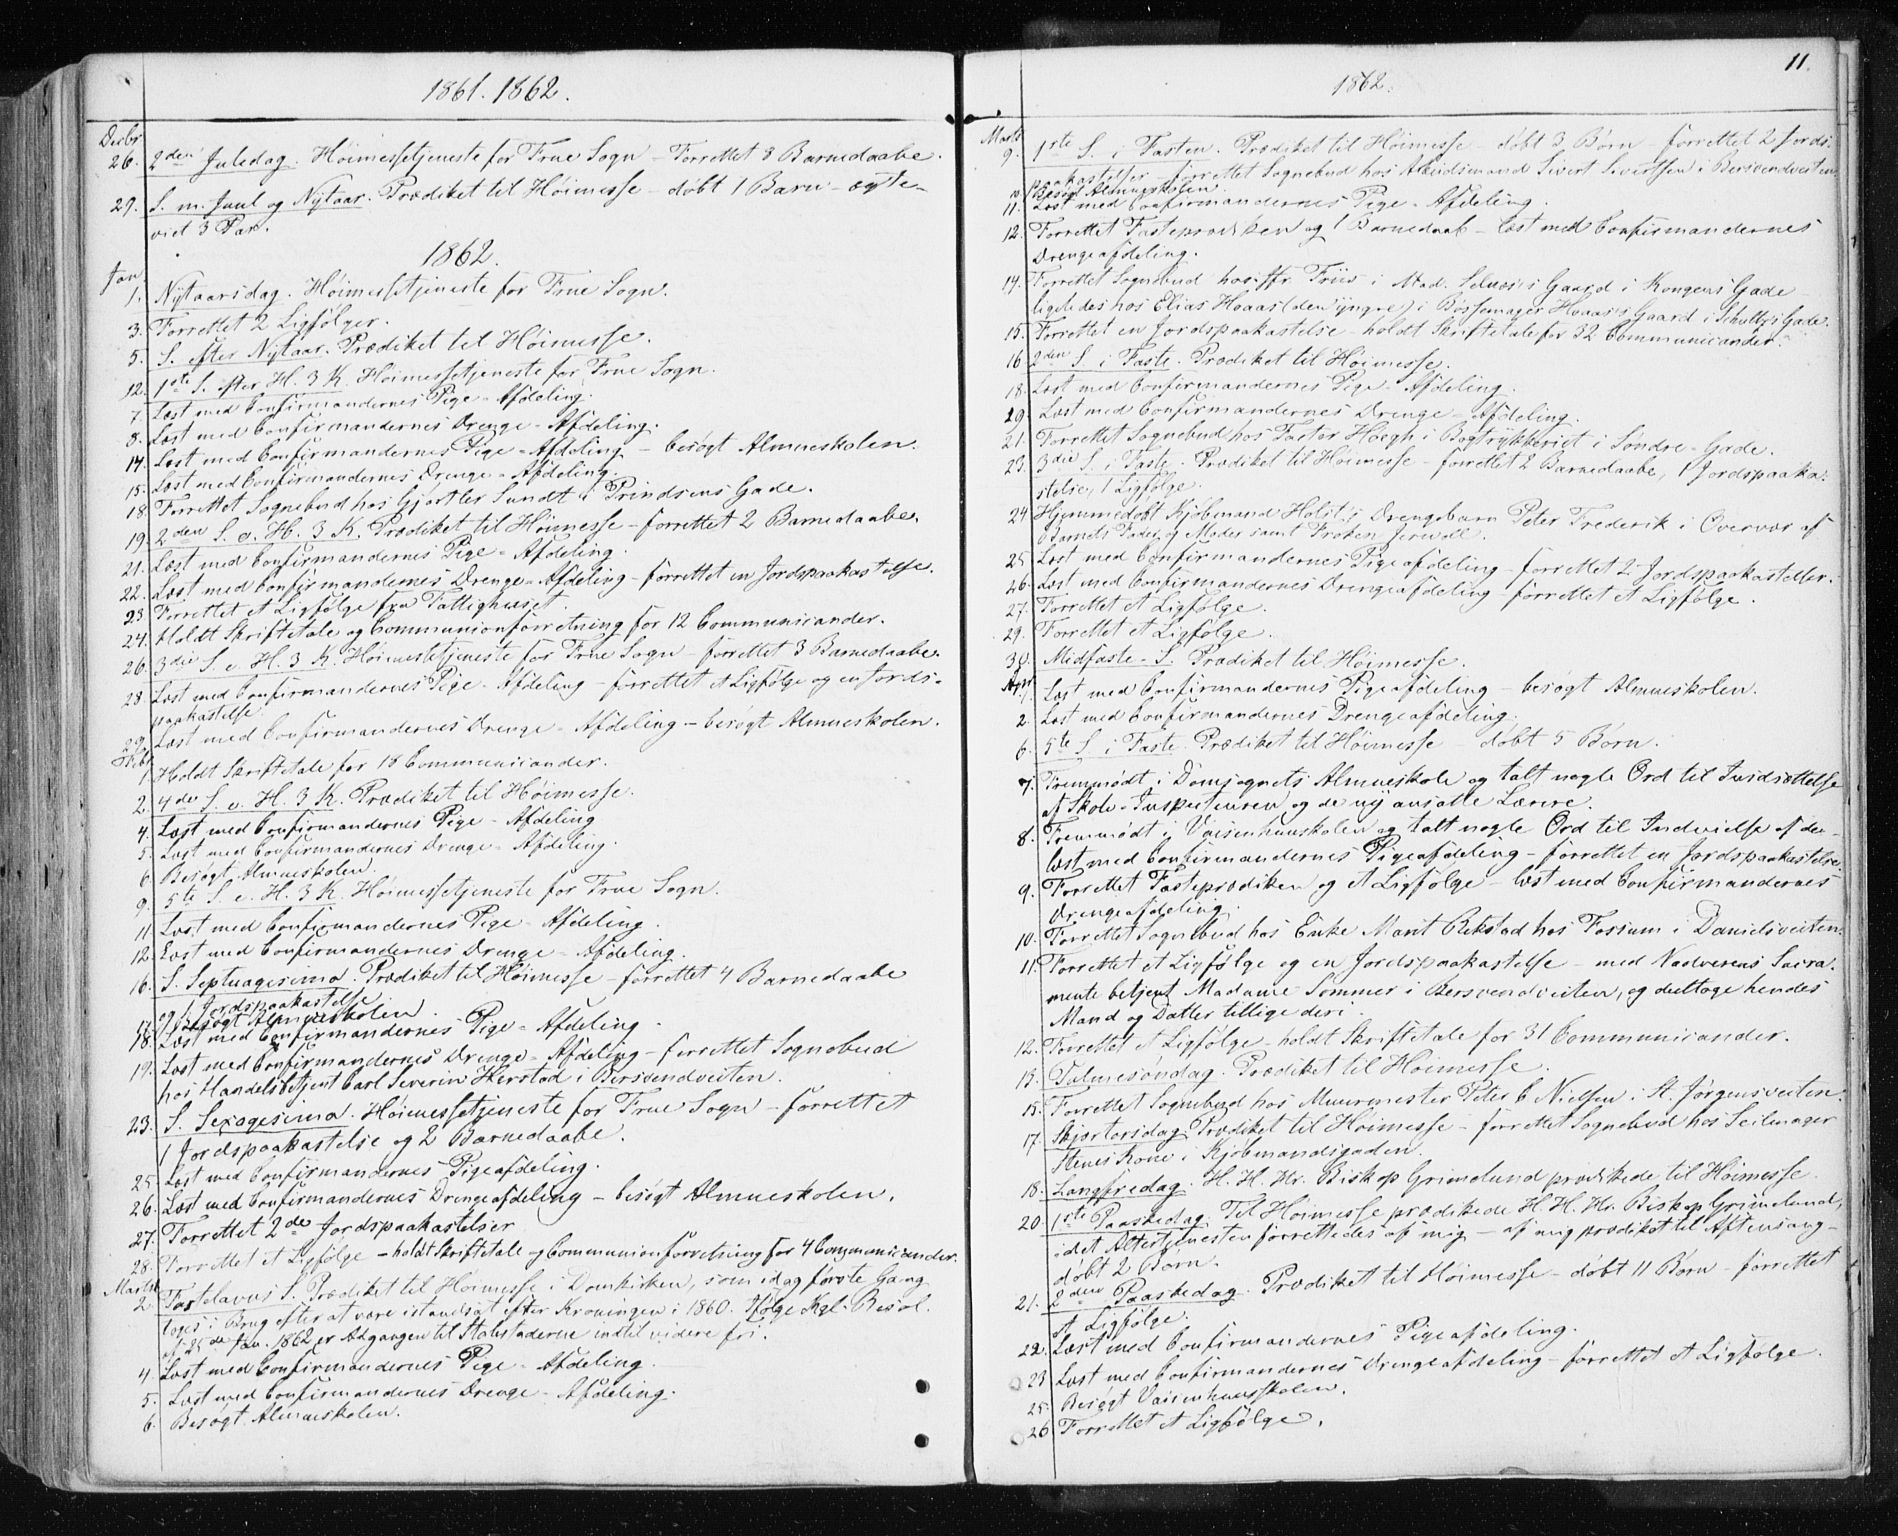 1861. 1862.
Decbr
26. 2den Juledag. Høimessetjeneste for Frue Sogn - Forrettet 8 Barnedaabe.
29. S. m. Juul og Nytaar. Prædiket til Høimesse - døbt 1 Barn - ægte-
viet 3 Par.
1862.
Jan.
1. Nytaarsdag. Høimessetjeneste for Frue Sogn.
3. Forrettet 2 Ligfølger.
5. S. efter Nytaar. Prædiket til Høimesse.
12. 1ste S. efter H. 3 K. Høimessetjeneste for Frue Sogn.
7. Læst med Confirmandernes Pige-Afdeling.
8. Læst med Confirmandernes Drenge-Afdeling.
14. Læst med Confirmandernes Pige-Afdeling - besøgt Almueskolen.
15. Læst med Confirmandernes Drenge-Afdeling.
18. Forrettet Sognebud hos Gjørtler Sundt i Prindsens Gade.
19. 2den S. e. H. 3 K. Prædiket til Høimesse - forrettet 2 Barnedaabe.
21. Læst med Confirmandernes Pige-Afdeling.
22. Læst med Confirmandernes Drenge-Afdeling - forrettet en Jordspaakastelse.
23 Forrettet et Ligfølge fra Fattighuset.
24. Holdt Skriftetale og Communionforretning for 12 Communicander.
26. 3die S. e. H. 3 K. Høimessetjeneste for Frue Sogn - forrettet 3 Barnedaabe.
28. Læst med Confirmandernes Pige-Afdeling - forrettet et Ligfølge og en Jords-
paakastelse.
29. Læst med Confirmandernes Drenge-Afdeling - besøgt Almueskolen.
Febr.
1 Holdt Skriftetale for 18 Communicander.
2. 4de S. e. H. 3 K. Prædiket til Høimesse.
4. Læst med Confirmandernes Pige-Afdeling
5. Læst med Confirmandernes Drenge-Afdeling.
6. Besøgt Almueskolen.
9. 5te S. e. H. 3 K. Høimessetjeneste for Frue Sogn.
11. Læst med Confirmandernes Pige-Afdeling.
12. Læst med Confirmandernes Drenge-Afdeling.
16. S. Septuagesima. Prædiket til Høimesse - forrettet 4 Barnedaabe
og 1 Jordspaakastelse.
17. Besøgt Almueskolen.
18. Læst med Confirmandernes Pige-Afdeling.
19. Læst med Confirmandernes Drenge-Afdeling - forrettet Sognebud
hos Handelsbetjent Carl Severin Herstad i Bersvendveiten.
23. S. Sexagesima. Høimessetjeneste for Frue Sogn - forrettet
1 Jordspaakastelse og 2 Barnedaabe.
25. Læst med Confirmandernes Pigeafdeling.
26. Læst med Confirmandernes Drengeafdeling - besøgt Almueskolen.
27. Forrettet 2de Jordspaakastelser
28. Forrettet et Ligfølge - holdt Skriftetale og Communionforretning for 4 Communicander.
Marts
2. Fastelavns S. Prædiket til Høimesse i Domkirken, som idag første Gang
toges i Brug efter at være istandsat efter Kroningen i 1860. Ifølge Kgl. Resol.
af 25de Jan. 1862 er Adgangen til Stolestaderne indtil videre fri.
4. Læst med Confirmandernes Pige-Afdeling.
5. Læst med Confirmandernes Drenge-Afdeling.
6. Besøgt Almueskolen.
1862.
11.
Marts
9. 1ste S. i Fasten. Prædiket til Høimesse - døbt 3 Børn - forrettet 2 Jords-
paakastelser - forrettet Sognebud hos Arbeidsmand Sivert Sivertsen i Bersvendveiten
10. Besøgt Almueskolen.
11. Læst med Confirmandernes Pige-Afdeling.
12. Forrettet Fasteprædiken og 1 Barnedaab - læst med Confirmandernes
Drengeafdeling.
14. Forrettet Sognebud hos Friis i Mad. Selnæs's Gaard i Kongens Gade -
ligeledes hos Elias Haaas (den yngre) i Bøssemager Haaas's Gaard i Schultzs Gade.
15. Forrettet en Jordspaakastelse - holdt Skriftetale for 32 Communicander.
16 2den S. i Faste. Prædiket til Høimesse.
18. Læst med Confirmandernes Pige-Afdeling.
19. Læst med Confirmandernes Drenge-Afdeling.
21. Forrettet Sognebud hos Factor Høegh i Bogtrykkeriet i Søndre-Gade.
23. 3die S. i Faste. Prædiket til Høimesse - forrettet 2 Barnedaabe, 1 Jordspaaka-
stelse, 1 Ligfølge.
24 Hjemmedøbt Kjøbmand Holst's Drengebarn Peter Frederik i Overvær af
Barnets Fader og Moder samt Frøken
25. Læst med Confirmandernes Pigeafdeling - forrettet 2 Jordspaakastelser.
26. Læst med Confirmandernes Drengeafdeling - forrettet et Ligfølge.
27. Forrettet et Ligfølge.
29. Forrettet et Ligfølge.
30. Midfaste-S. Prædiket til Høimesse.
Apr.
1 Læst med Confirmandernes Pigeafdeling - besøgt Almueskolen.
2. Læst med Confirmandernes Drengeafdeling.
6. 5te S. i Faste. Prædiket til Høimesse - døbt 5 Børn.
7. Fremmødt i Domsognets Almueskole og talt nogle Ord til Indsættelse
af Skole-Inspecteuren og de ny ansatte Lærere.
8. Fremmødt i Vaisenhuusskolen og talt nogle Ord til Indvielse af den -
læst med Confirmandernes Pigeafdeling - forrettet en Jordspaakastelse.
9. Forrettet Fasteprædiken og et Ligfølge - læst med Confirmandernes
Drengeafdeling.
10. Forrettet Sognebud hos Enke Marit Rekstad hos Fossum i Danielsveiten.
11. Forrettet et Ligfølge og en Jordspaakastelse - med Nadverens Sacra-
mente betjent Madame Sommer i Bersvendveiten, og deeltoge hendes
Mand og Datter tillige deri.
12. Forrettet et Ligfølge - holdt Skriftetale for 31 Communicander.
13. Palmesøndag. Prædiket til Høimesse.
15. Forrettet Sognebud hos Muurmester Peter C Nielsen i St. Jørgensveiten.
17. Skjærtorsdag. Prædiket til Høimesse - forrettet Sognebud hos Seilmager
Steens Kone i Kjøbmandsgaden.
18. Langfredag. H. H. Hr. Biskop Grimelund prædikede til Høimesse.
20. 1ste Paaskedag. Til Høimesse prædikede H. H. Hr. Biskop Grimelund,
idet Altertjenesten forrettedes af mig - af mig prædiket til Aftensang -
døbt 2 Børn.
21. 2den Paaskedag. Prædiket til Høimesse - døbt 11 Børn - forrettet
et Ligfølge.
22. Læst med Confirmandernes Pigeafdeling.
23 Læst med Confirmandernes Drengeafdeling - forrettet et Ligfølge.
25. Besøgt Vaisenhuusskolen.
26 Forrettet et Ligfølge.